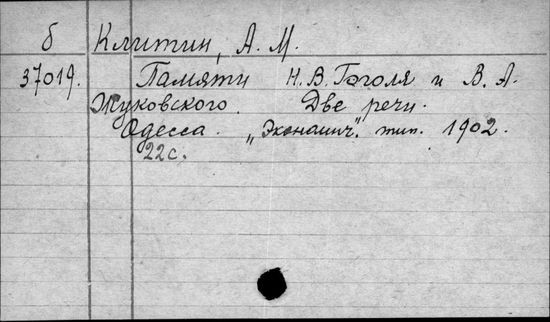 б Клитин, А. М.
37019. Памяти Н. В. Гоголя и В. А.
Жуковского. Две речи.
Одесса. „Экономич". тип. 1902.
22 с.